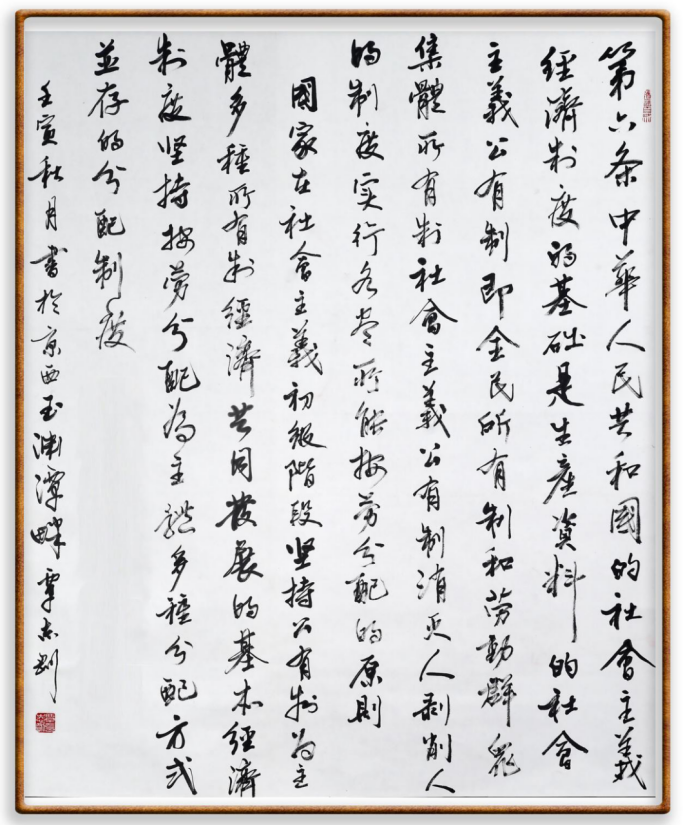 第六条中華人民共和國的社會主義
經濟制度的基础是生產資料的社會
主義公有制即全民所有制和劳動群眾
集體所有制社會主義公有制消灭人剥削人
的制度实行各尽所能按劳分配的原則
國家在社會主義初級階段坚持公有制为主
體多種所有制經濟共同發展的基本經濟
制度坚持按劳分配為主體多種分配方式
並存的分配制度
壬寅秋月書於京西玉渊潭畔覃志刚